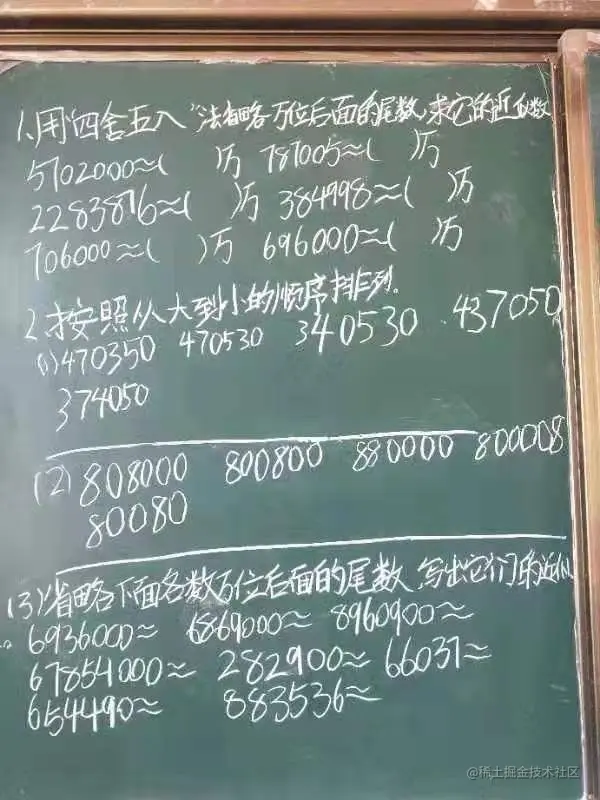 1、用"四舍五入"法省略万位后面的尾数,求它的近似数
5702000≈( )万 787005≈( )万
2283876≈( )万 384998≈( )万
706000≈( )万 696000≈( )万
2、按照从大到小的顺序排列.
(1)470350 470530 340530 437050
374050
(2)808000 800800 880000 800008
80080
(3)省略下面各数万位后面的尾数,写出它们的近似
6936000≈ 6869000≈ 8960900≈
67854000≈ 282900≈ 66037≈
654490≈ 883536≈
@稀土掘金技术社区